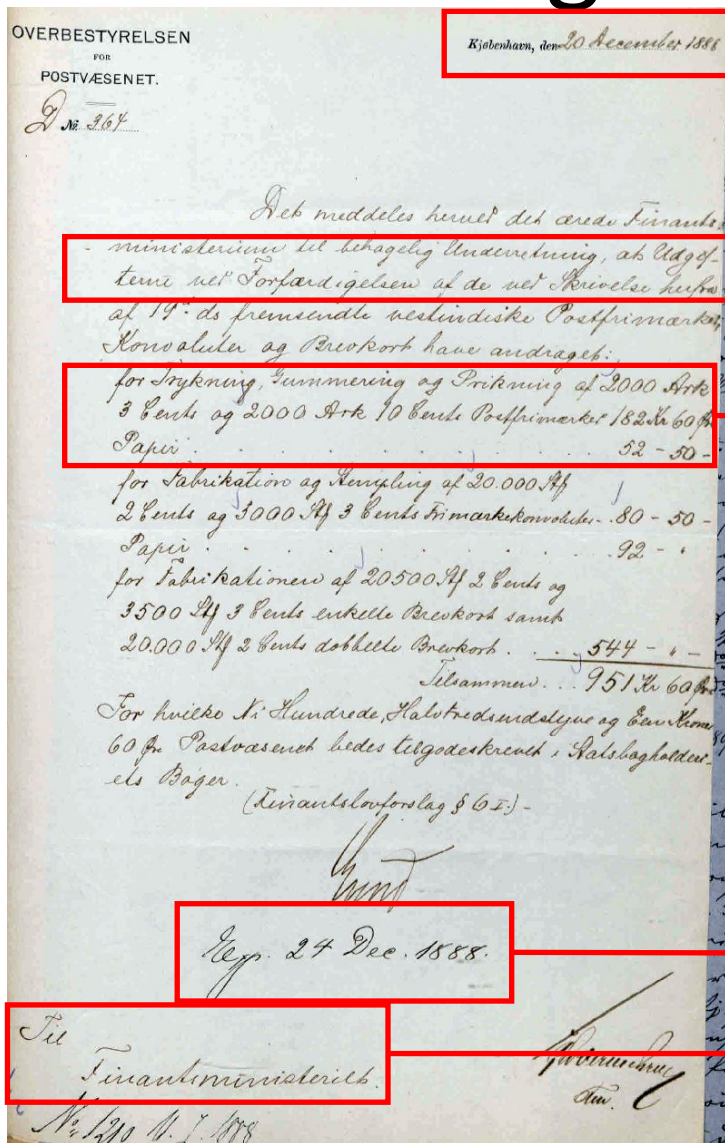 OVERBESTYRELSEN
FOR
POSTVÆSENET.
D № 364
Kjøbenhavn, den 20 December 1888
Det meddeles herved det ærede Finants-
ministerium til behagelig Underretning, at Udgif-
terne ved Forfærdigelsen af de ved Skrivelse herfra
af 19de ds fremsendte vestindiske Postfrimærker,
Konvoluter og Brevkort have andraget:
for Trykning, Gummering og Prikning af 2000 Ark
3 Cents og 2000 Ark 10 Cents Postfrimærker 182 Kr 60 Øre
Papir . . . . . . . 52 - 50 -
for Fabrikation og Stempling af 20.000 Stk
2 Cents og 3000 Stk 3 Cents Frimærkekonvoluter - 80 - 50 -
Papir . . . . . . . 92 - "
for Fabrikationen af 20500 Stk 2 Cents og
3500 Stk 3 Cents enkelte Brevkort samt
20.000 Stk 2 Cents dobbelte Brevkort . . . . 544 - " -
Tilsammen . . . 951 Kr 60 Øre
For hvilke Ni Hundrede, Halvtredsindstyve og Een Krone
60 Øre Postvæsenet bedes tilgodeskrevet i Statsbogholderi-
ets Bøger.
(Finantslovforslag § 6 I.) -
Lund
Exp. 24 Dec. 1888.
Til
Finantsministeriet.
No 1210 1888